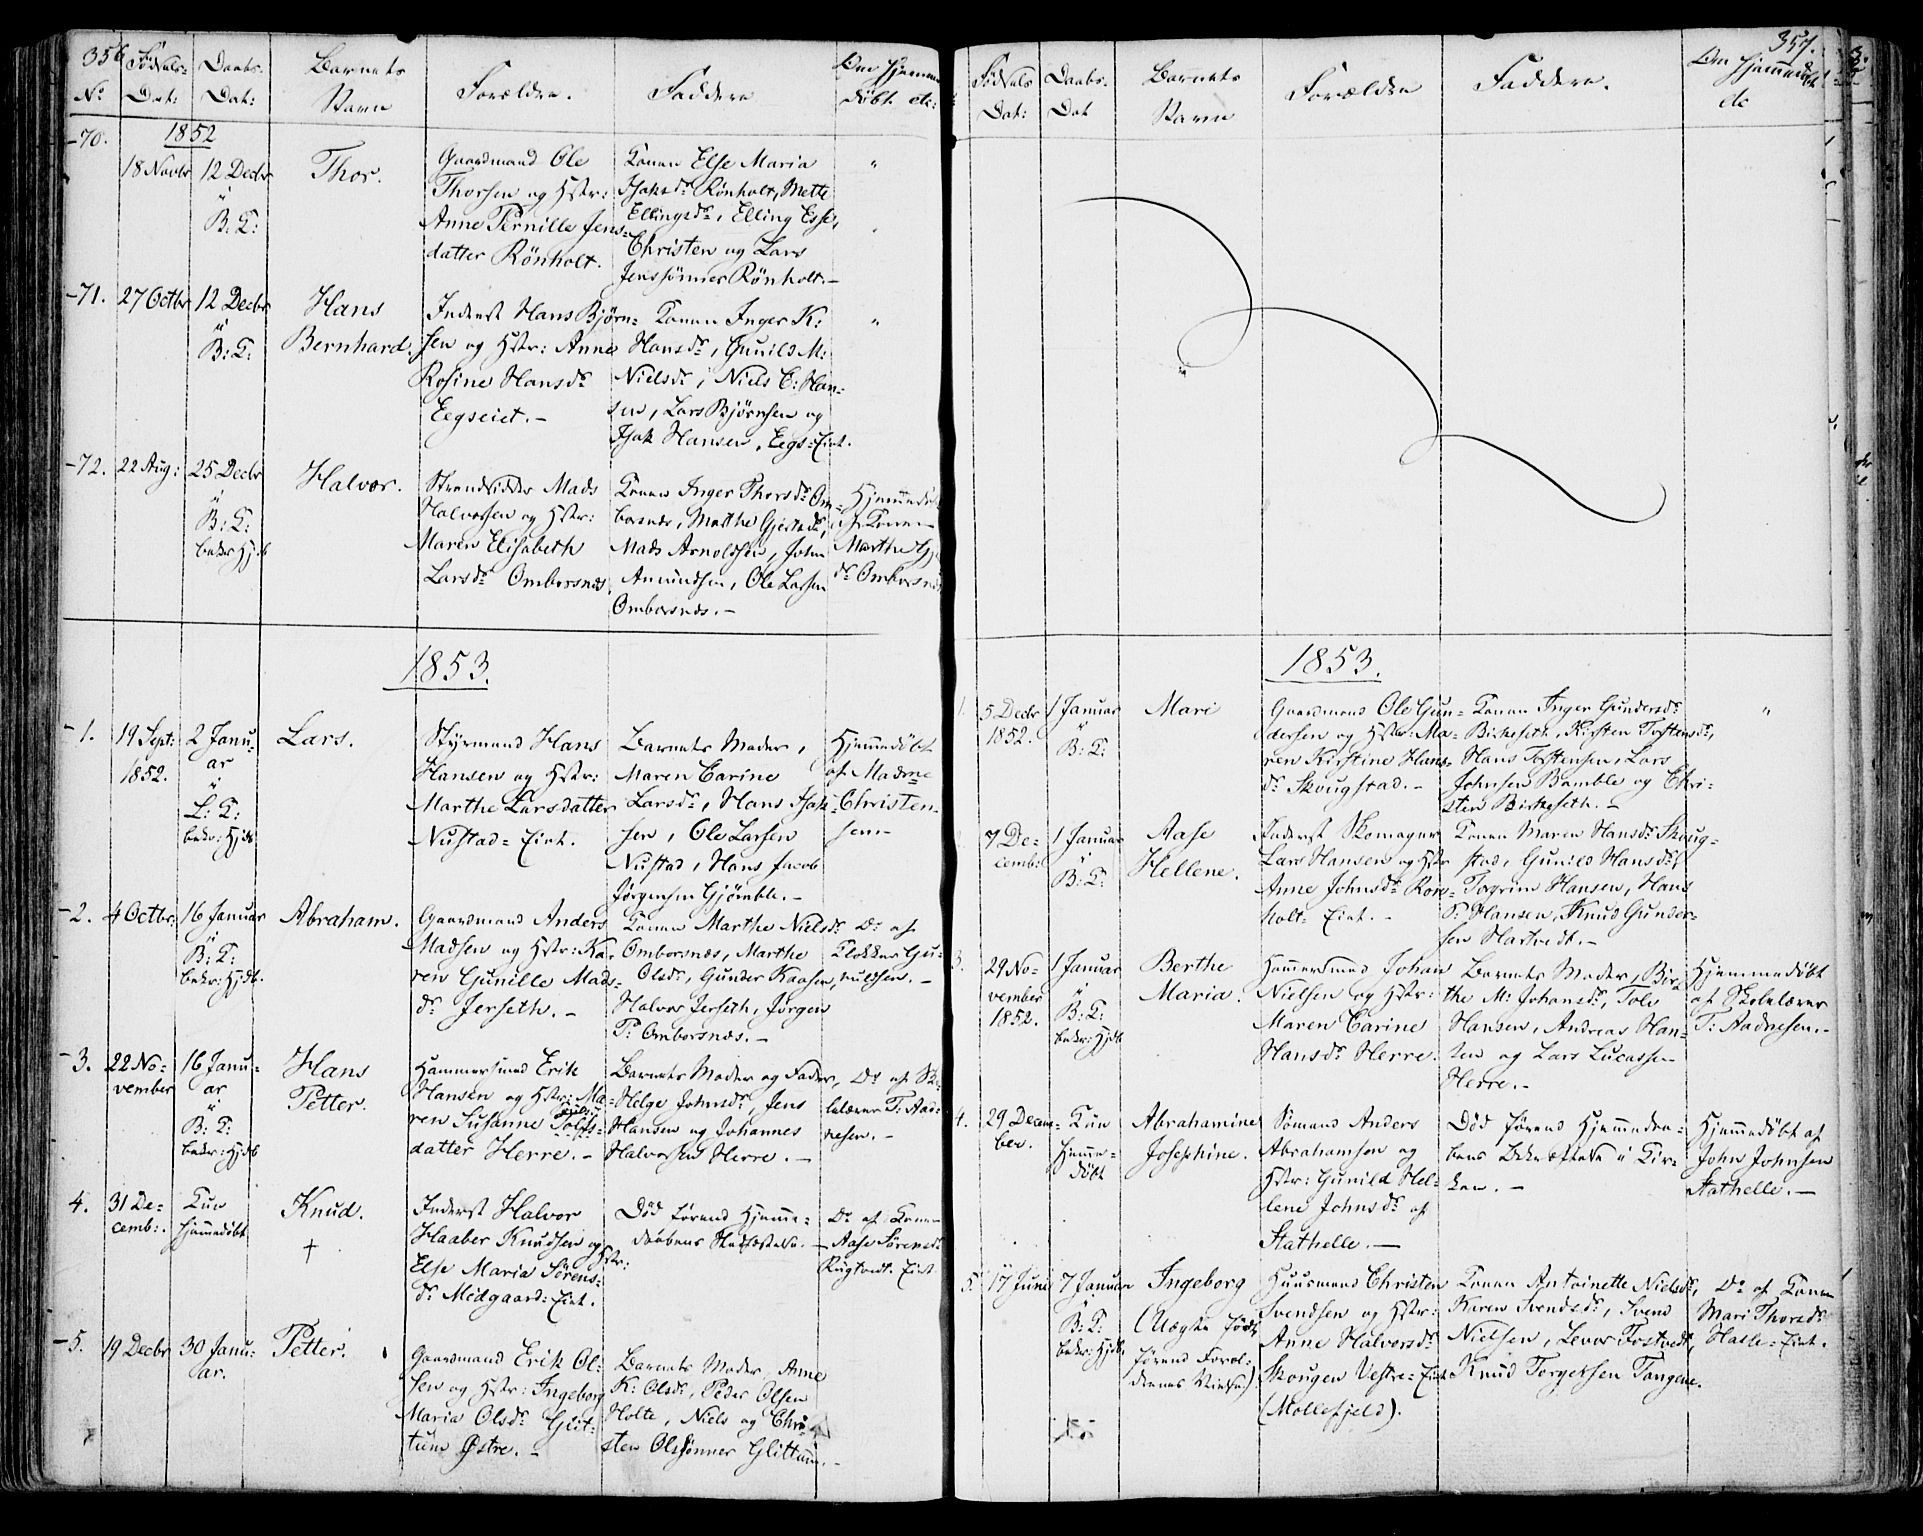 356
No
Fødsels-
Dat:
Daabs-
Dat:
Barnets
Navn
Forældre.
Faddere
Om hjemme
døbt etc:
1852
-70.
18 Novbr
12 Decbr
B. T:
Thor.
Gaardmand Ole
Thorsen og Hstr:
Anne Pernille Jens-
datter Rönholt.
Konen Else Maria
Isaksdr Rönholt, Mette
Ellingsdr, Elling
Christen og Lars
Jenssønner Rönholt.-
"
-71.
27 Octbr
12 Decbr
B: T:
Hans
Bernhard.
Inderst Hans Bjørn-
sen og Hstr: Anne
Rosine Hansdr
Eegseiet.-
Konen Inger K:
Hansdr, Gunild M:
Nielsdr, Niels C: Han-
sen, Lars Bjørnsen og
Isak Hansen, Eegs-Eiet.
"
-72.
22 Aug:
25 Decbr
B: T:
bekr: Hjdb
Halvor.
Strandsidder Mads
Halvorsen og Hstr:
Maren Elisabeth
Larsdr Omborsnæs.
Konen Inger Thorsdr Om-
borsnæs, Marthe Gjertsdr,
Mads Arnoldsen, John
Amundsen, Ole Larsen
Omborsnæs.-
Hjemmedøbt
af Konen
Marthe
dr Omborsnæs
1853.
-1.
19 Sept:
1852.
2 Janu-
ar
L: T:
bekr: Hjdb
Lars.
Styrmand Hans
Hansen og Hstr:
Marthe Larsdatter
Nustad-Eiet.
Barnets Moder,
Maren Carine
Larsdr, Hans Isak-
sen, Ole Larsen
Nustad, Hans Jacob
Jørgensen Gjømble.-
Hjemmedøbt
af Madme
Christen-
sen-
-2.
4 Octbr:
16 Januar
B: T:
bekr: Hjdb.
Abraham.
Gaardmand Anders
Madsen og Hstr: Ka-
ren Gunille Mads-
dr Jerseth.-
Konen Marthe Nielsdr
Omborsnæs, Marthe
Olsdr, Gunder Kaasen,
Halvor Jerseth, Jørgen
P: Omborsnæs.-
Do af
Klokker Gu-
nuldsen.-
-3.
22 No-
vember
16 Janu-
ar
B: T:
bekr: Hjdb
Hans
Petter.
Hammersmed Erik
Hansen og Hstr: Ma-
ren Susanne Tolfs-
datter Herre.-
Barnets Moder og Fader,
Helge Johnsdr, Jens
Hansen og Johannes
Halvorsen Herre.-
Do af Sko-
lelærer T: Aad-
nesen.-
4.
31 De-
cemb:.
Kun
hjemmedøbt
Knud.
†
Inderst Halvor
Haaber Knudsen og
Hstr:
Else Maria Sörens-
dr Midgaard-Eiet.
Død førend Hjemme-
daabens Stadfæstelse.-
Do af Konen
Aase Sørensdr
Rugtvedt-Eiet
-5.
19 Decbr
30 Janu-
ar.
Petter.
Gaardmand Erik Ol-
sen og Hstr: Ingeborg
Maria Olsdr Glit-
tum Østre.-
Barnets Moder, Anne
K: Olsdr, Peder Olsen
Holte, Niels og Chri-
sten Olssønner Glittum.-
357.
Fødsels
Dat:
Daabs-
Dat
Barnets
Navn
Forældre
Faddere.
Om hjemmedøbt
etc
1853.
1.
5 Decbr
1852.
1 Januar
B: T:
Mari
Gaardmand Ole Gun-
dersen og Hstr: Ma-
ren Kirstine Hans-
dr Skougstad.-
Konen Inger Gundersdr
Birkseth, Kirsten Torstensdr,
Hans Torstensen, Lars
Johnsen Bamble og Chri-
sten Birkseth.-
"
7 De-
cemb:
1 Januar
B: T:
Aase
Hellene.
Inderst Skomager
Lars Hansen og Hstr
Anne Johnsdr Rön-
holt-Eiet.-
Konen Maren Hansdr Skoug-
stad, Gunild Hansdr,
Torgrim Hansen, Hans
P: Hansen, Knud Gunder-
sen Hartvedt.-
3.
29 No-
vember
1852.
1 Januar
B: T:
bekr: Hjdb
Berthe
Maria.
Hammersmed Johan
Nielsen og Hstr:
Maren Carine
Hansdr Herre.
Barnets Moder, Bir-
the M: Johansdr, Tolv
Hansen, Andreas Han-
sen og Lars Lucassen
Herre.-
Hjemmedøbt
af Skolelærer
T: Aadnesen.-
4.
29 Decem-
ber.
Kun
Hjemme-
døbt
Abrahamine
Josephine.
Sömand Anders
Abrahamsen og
Hstr: Gunild Hel-
lene Johnsdr af
Stathelle.-
Død førend Hjemmedaa-
bens Bekræftelse i Kir-
ken.-
Hjemmedøbt af
John Johnsen
Stathelle.-
5.
17 Juni
7 Januar
B: T:
bekr: Hjdb.
Ingeborg
(Uægte født
førend Foræl-
drenes Vielse)
Huusmand Christen
Svendsen og Hstr:
Anne Halvorsdr
Skougen Vestre-Eiet
(Mollefjeld).
Konen Antoinette Nielsdr,
Karen Svendsdr, Svend
Nielsen, Levor Tostvedt,
Knud Torgersen Tangene.
Do af Konen
Mari Thorsdr
Hasle-Eiet.